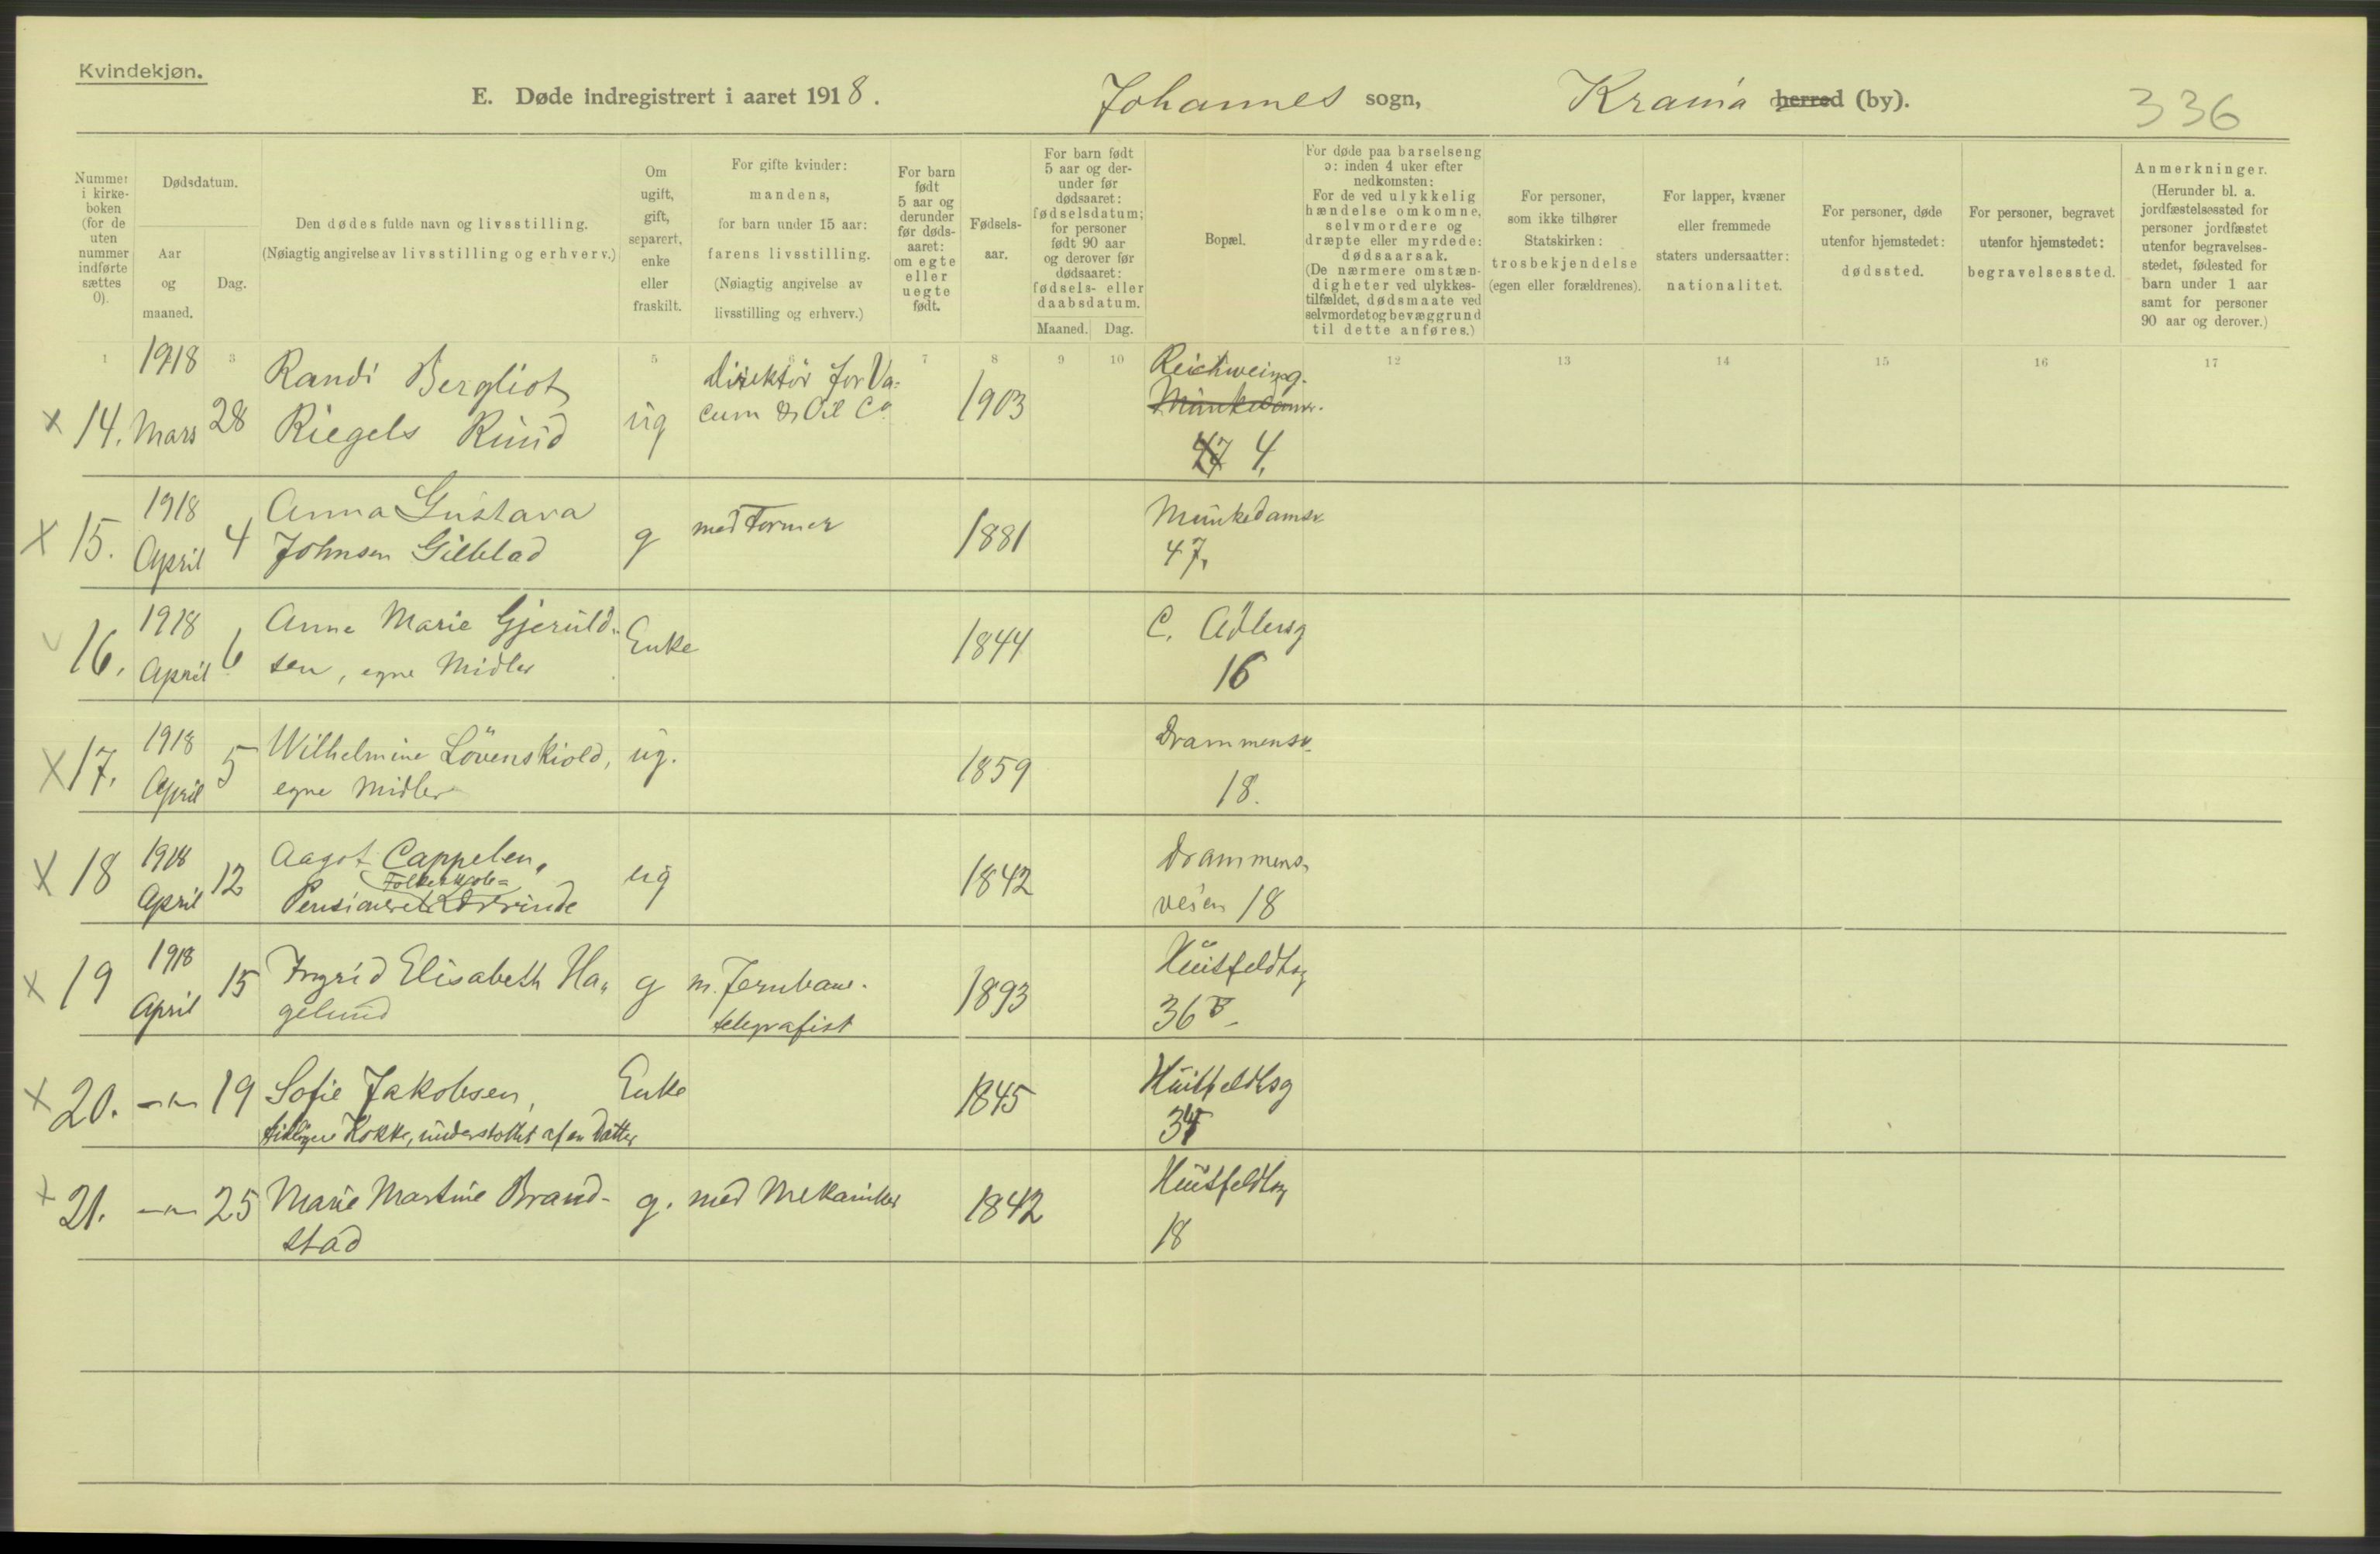 Kvindekjøn.
E. Døde indregistrert i aaret 1918. Johannes sogn, Krania herred (by). 336
Nummer i kirkeboken (for de uten nummer indførte sættes 0).
Dødsdatum.
Aar og maaned.
Dag.
Den dødes fulde navn og livsstilling.
(Nøiagtig angivelse av livsstilling og erhverv.)
Om ugift, gift, separert, enke eller fraskilt.
For gifte kvinder: mandens, for barn under 15 aar: farens livsstilling. (Nøiagtig angivelse av livsstilling og erhverv.)
For barn født 5 aar og derunder før dødsaaret: om egte eller uegte født.
Fødselsaar.
For barn født 5 aar og derunder før dødsaaret: fødselsdatum; for personer født 90 aar og derover før dødsaaret: fødsels- eller daabsdatum.
Maaned. Dag.
Bopæl.
For døde paa barselseng ɔ: inden 4 uker efter nedkomsten: For de ved ulykkelig hændelse omkomne, selvmordere og dræpte eller myrdede: dødsaarsak. (De nærmere omstændigheter ved ulykkestilfældet, dødsmaate ved selvmordet og bevæggrund til dette anføres.)
For personer, som ikke tilhører Statskirken: trosbekjendelse (egen eller forældrenes).
For lapper, kvæner eller fremmede staters undersaatter: nationalitet.
For personer, døde utenfor hjemstedet: dødssted.
For personer, begravet utenfor hjemstedet: begravelsessted.
Anmerkninger. (Herunder bl. a. jordfæstelsessted for personer jordfæstet utenfor begravelsesstedet, fødested for barn under 1 aar samt for personer 90 aar og derover.)
1 3 5 7 8 9 10 12 13 14 15 16 17
x 14. 1918 Mars 28 Randi Bergliot Riegels Ruud ug Direktør for Vacum & Oil Co 1903 Reichweinsg. Munkedamsv. 47 4.
x 15. 1918 April 4 Anna Gustava Johnsen Gilblad g med Former 1881 Munkedamsv 47.
16. 1918 April 6 Anne Marie Gjeruldsen, egne Midler Enke 1844 C. Adlersg 16
x 17. 1918 April 5 Wilhelmine Lövenskiold, egne Midler ug. 1859 Drammensv. 18.
x 18 1918 April 12 Aagot Cappelen, Pensioneret Folkeskole= Lærerinde ug 1842 Drammensveien 18
x 19 1918 April 15 Ingrid Elisabeth Hagelund g m. Jernbanetelegrafist 1893 Huitfeldtsg 36 B
x 20. -"- 19 Sofie Jakobsen, tidligere Kokke, understøttet af en Datter Enke 1845 Huitfeldtsg
x 21. -"- 25 Marie Martine Brandstad g. med Mekaniker 1842 Huitfeldtsg 18